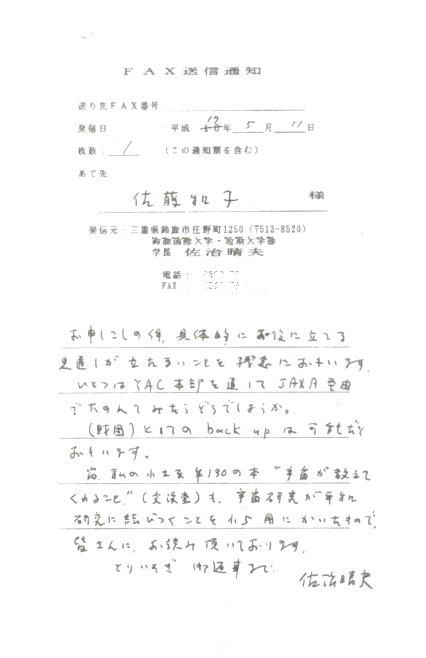 FAX送信通知
送り先FAX番号
発信日 平成 年 5月 11日
枚数: 1 (この通知票を含む)
あて先
佐藤 子 様
発信元:三重県鈴鹿市庄野町1250(〒513-8520)
鈴鹿国際大学・短期大学部
学長 佐治晴夫
電話:
FAX:
お申しこしの件、具体的にお役に立てる
見通しが立たないことを残念におもいます。
ひとつはYAC本部を通してJAXA経由
でたのんでみたらどうでしょうか。
(野園)としてのback upは可能だと
おもいます。
尚、私の小 の本"宇宙が教えて
くれること"( )も、宇宙研究が平和
研究に結びつくことを 用にかいたもので、
皆さんに、お読み頂いております。
とりいそぎ 御返事まで
佐治晴夫